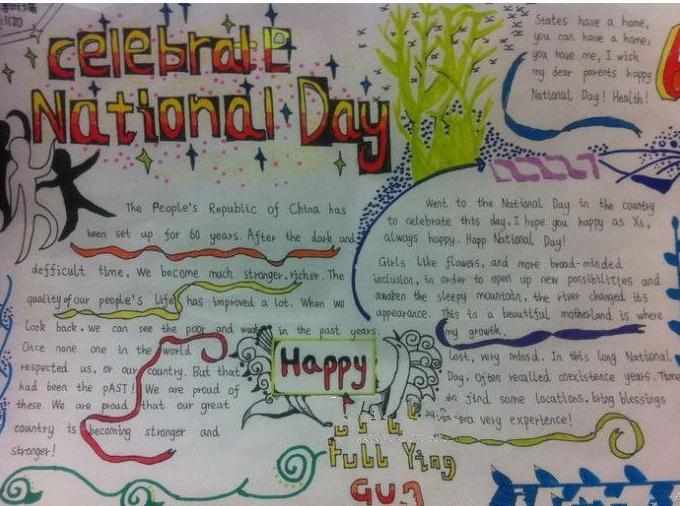 celebrate
National Day
States have a home,
you can have a home,
you have me, I wish
my dear parents happy
National Day! Health!
The People's Republic of China has
been set up for 60 years. After the dark and
defficult time. We become much stronger. richer. The
quality of our people's life has improved a lot. When we
Look back. we can see the poor and weak in the past years.
Once none one in the world
respected us, or our country. But that
had been the pAST! We are proud of
these We are proud that our great
country is becoming stronger and
stronger!
Went to the National Day in the country
to celebrate this day. I hope you happy as Xi,
always happy. Happ National Day!
Girls like flowers, and more broad-minded
inclusion, in order to open up new possibilities and
awaken the sleepy mountain, the river changed its
appearance. This to a beautiful motherland is where
my growth.
Lost, very mind. In this long National
Day, Often recalled coexistence years. There
find some locations. bring blessings
a very experience!
Happy
Full Ying
GUA